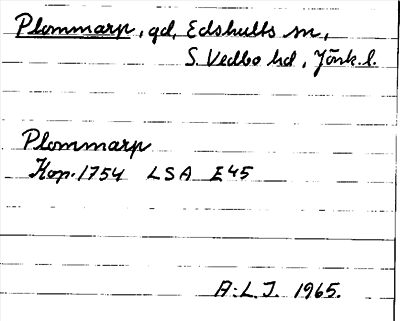 Plommarp, gd, Edshults sn,
S. Vedbo hd, Jönk. l.
Plommarp
Kop. 1754 LSA E45
A.L.J. 1965.